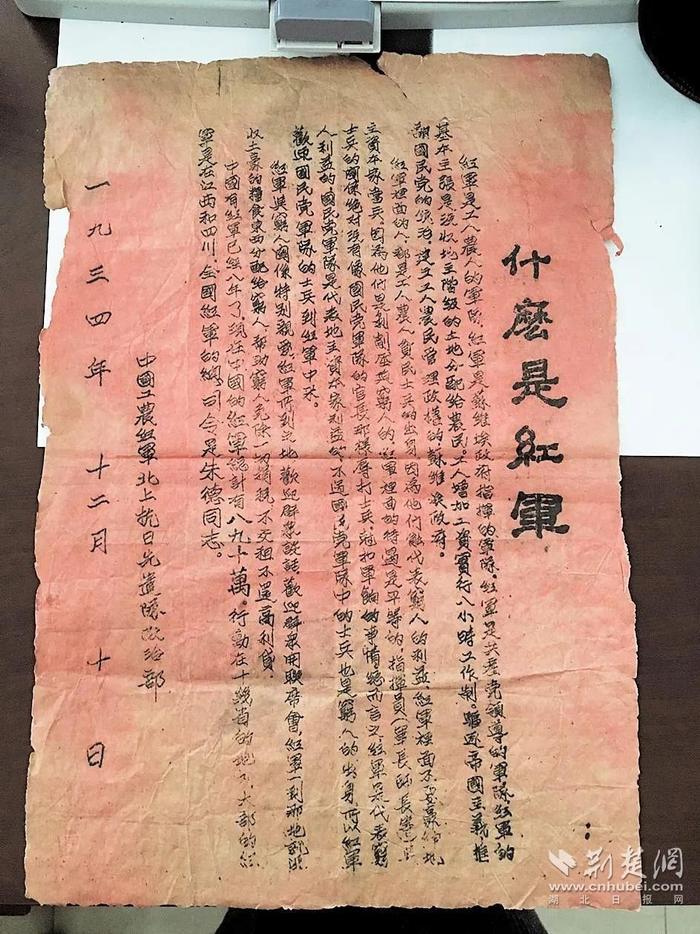 什麼是紅軍
紅軍是工人農人的軍隊，紅軍是蘇維埃政府指揮的軍隊，紅軍是共產党領導的軍隊，紅軍的
基本主張是没收地主階級的土地分配給農民。工人增加工資實行八小時工作制。驅逐帝國主義，推
翻國民党的統治，建立工人農民管理政權的蘇維埃政府。
紅軍裡面的人，都是工人農人貧民士兵的出身，因為他們能代表窮人的利益，紅軍裡面不要
主資本家當兵，因為他們是剝削壓迫窮人的，紅軍裡面的待遇是平等的，指揮員（軍長師長
士兵的關係絕对没有像國民党軍隊的官長那様辱打士兵尅扣軍餉的事情。總而言之，紅軍是代表窮
人利益的，國民党軍隊是代表地主資本家利益的，不過國民党軍隊中的士兵也是窮人的出身，所以紅軍
歡迎國民党軍隊的士兵到紅軍中來。
紅軍與窮人關係特别親愛，紅軍所到之地歡迎群衆談話歡迎群衆開聯席會，紅軍一到那地就没
收土豪的糧食東西分配給窮人，帮助窮人免除一切捐税，不交租不還高利貸。
中國有紅軍已經八年了，現在中國的紅軍總計有八九十萬。行動在十幾省的地方，大部的紅
軍是在江西和四川，全國紅軍的總司令是朱德同志。
中國工農紅軍北上抗日先遣隊政治部
一九三四年 十二月 十日
荆楚網
www.cnhubei.com
湖北日报网